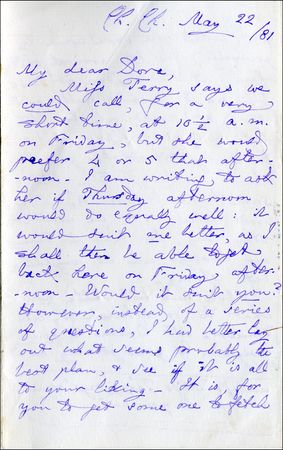 Ch. Ch. May 22/81
My dear Dora,
Miss Terry says we
could call, for a very
short time, at 10 ½ a.m.
on Friday, but she would
prefer 4 or 5 that after-
-noon. I am writing to ask
her if Thursday afternoon
would do equally well: it
would suit me better, as I
shall then be able to get
back here on Friday after-
-noon — Would it suit you?
However, instead of a series
of questions, I had better lay
out what seems probably the
best plan, & see if it is all
to your liking — It is, for
you to get some one to fetch